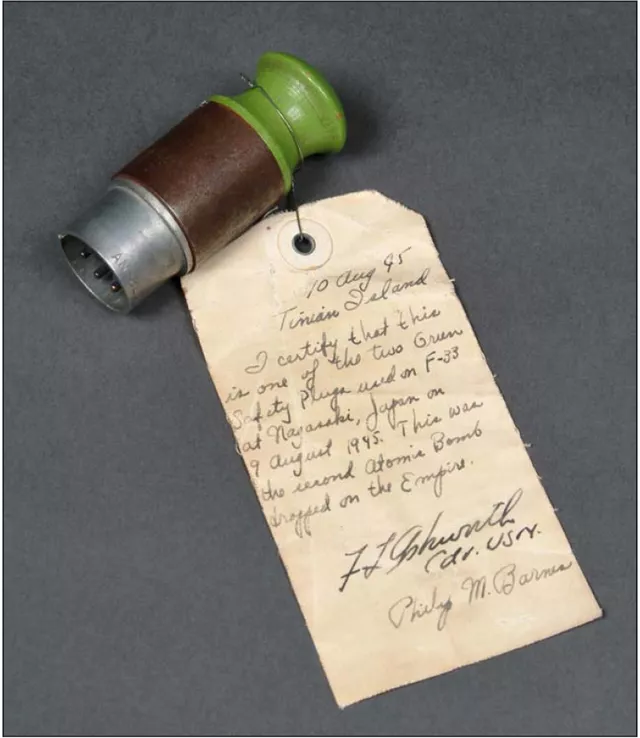 10 Aug 45
Tinian Island
I certify that this
is one of the two Green
Safety Plugs used on F-33
at Nagasaki, Japan on
9 August 1945. This was
the second Atomic Bomb
dropped on the Empire.
F L Ashworth
Cdr. USN.
Philip M. Barnes